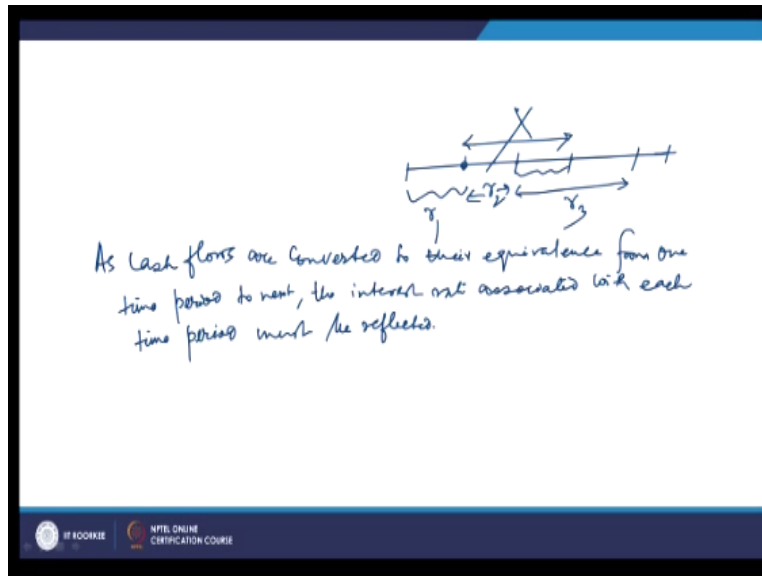 X
r1 r2 r3
As Cash flows are Converted to their equivalence from one
time period to next, the interest rate associated with each
time period must be reflected.
IIT ROORKEE
NPTEL ONLINE
CERTIFICATION COURSE